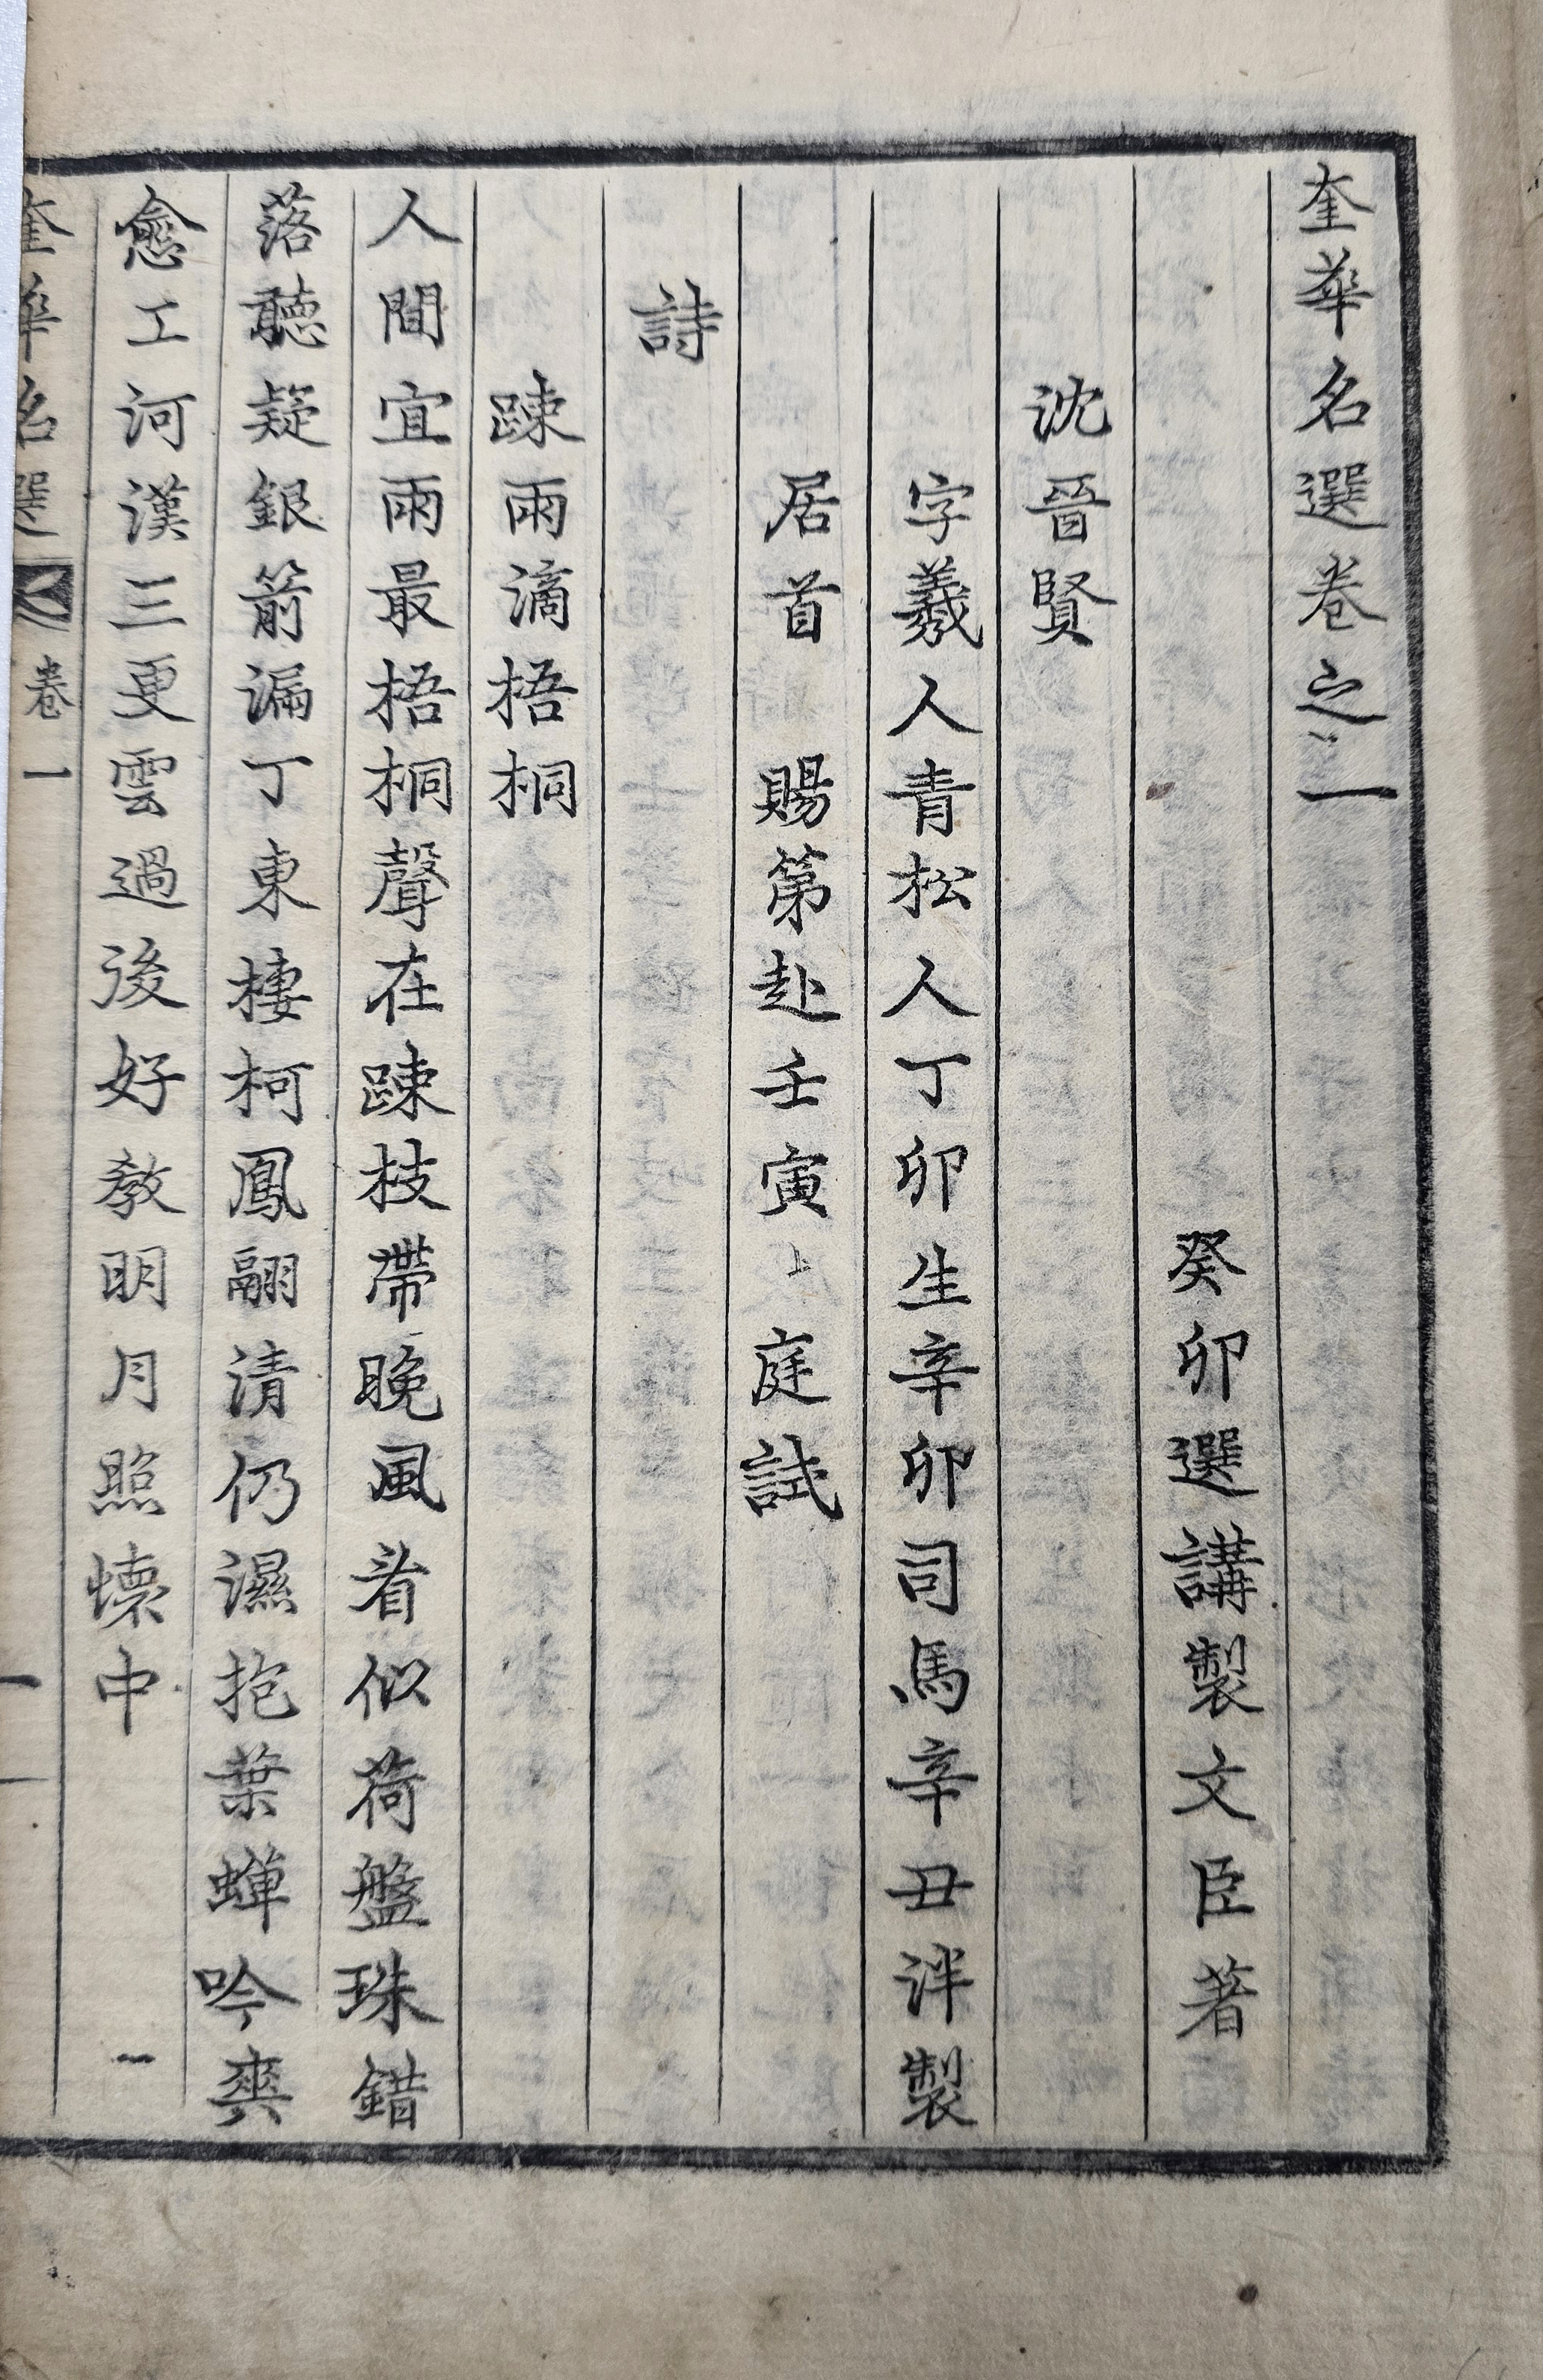 奎華名選卷之一
癸卯選講製文臣著
沈晉賢
字羲人青松人丁卯生辛卯司馬辛丑泮製
居首 賜第赴壬寅 庭試
詩
踈雨滴梧桐
人間宜雨最梧桐聲在踈枝帶晚風看似荷盤珠錯
落聽疑銀箭漏丁東棲柯鳳翮清仍濕抱葉蟬吟爽
愈工河漢三更雲過後好教明月照懷中
奎華名選 卷一 一